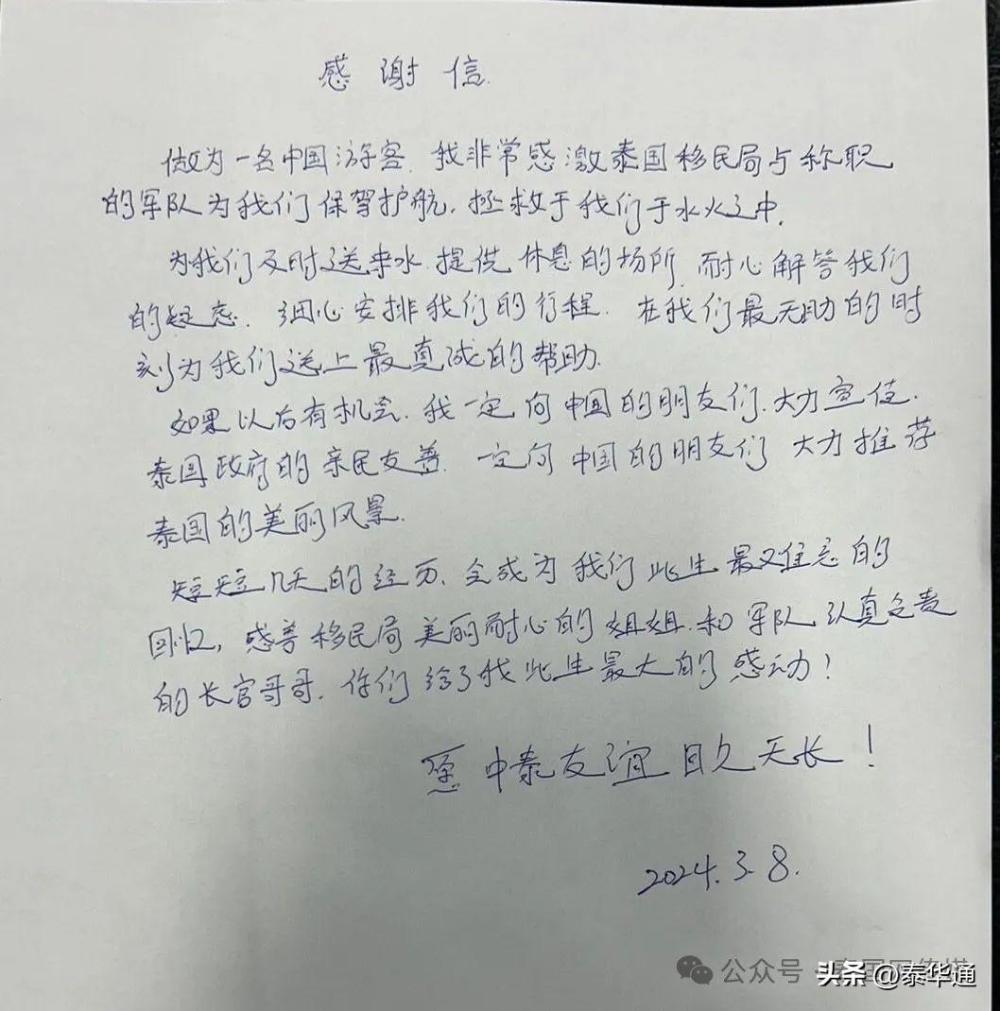 感谢信
做为一名中国游客.我非常感激泰国移民局与称职
的军队为我们保驾护航.拯救于我们于水火之中.
为我们及时送来水.提供休息的场所.耐心解答我们
的疑惑.细心安排我们的行程.在我们最无助的时
刻为我们送上最真诚的帮助.
如果以后有机会.我一定向中国的朋友们.大力宣传.
泰国政府的亲民友善.一定向中国的朋友们大力推荐
泰国的美丽风景.
短短几天的经历、会成为我们此生最难忘的
回忆，感善移民局美丽耐心的姐姐.和军队认真负责
的长官哥哥.你们给了我此生最大的感动！
愿中泰友谊日久天长！
2024.3.8.
公众号
头条@泰华通